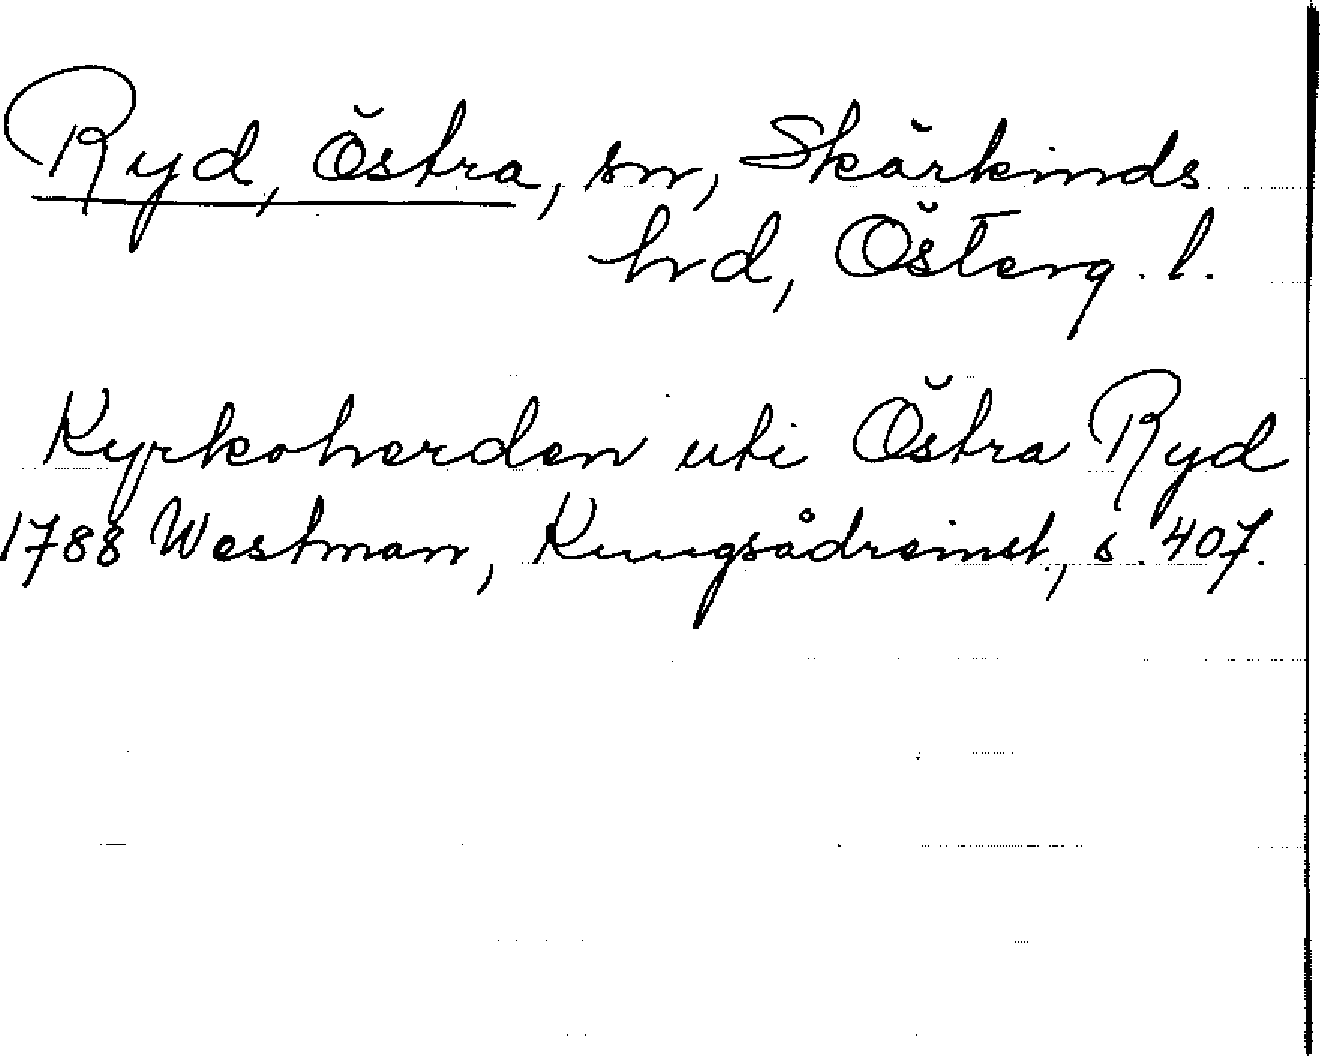 Ryd, Östra, sn, Skärkinds
hrd, Österg. l.
Kyrkoherden uti Östra Ryd
1788 Westman, Kungsådreinst., s. 407.